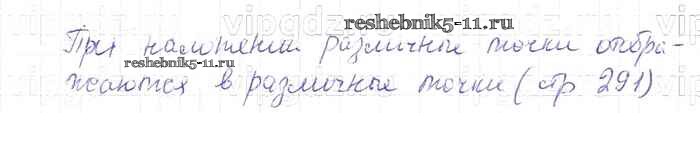 reshebnik5-11.ru
При наложении различные точки отобра-
reshebnik5-11.ru
жаются в различные точки (стр 291)